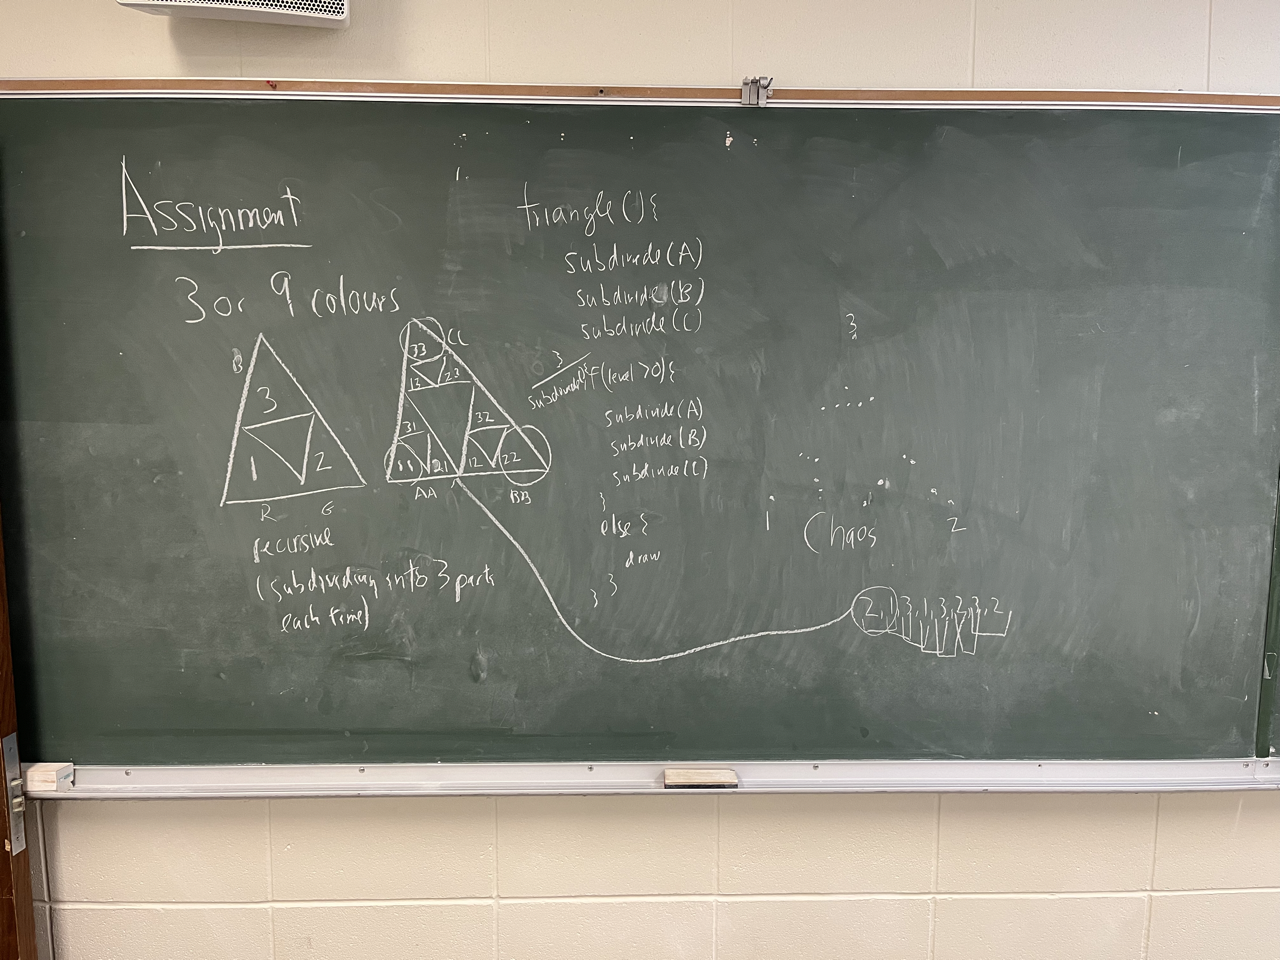 Assignment
3 or 9 colours
B
3
1
2
R
G
recursive
(subdividing into 3 parts
each time)
CC
33
13
23
31
32
11
21
12
22
AA
BB
triangle(){
subdivide(A)
subdivide(B)
subdivide(C)
}
subdivide(){
if(level>0){
subdivide(A)
subdivide(B)
subdivide(C)
}
else{
draw
}
}
3
1
Chaos
2
2,1,3,1,3,2,3,2